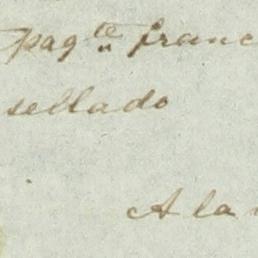 pag.te franc
sellado
A la